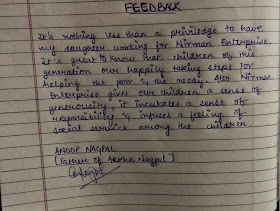 FEEDBACK
It's nothing less than a priviledge to have
my daughter working for Nirman Enterprise.
It's great to know that children of this
generation are happily taking steps for
helping the poor & the needy. Also Nirman
Enterprise gives our children a sense of
generousity, it incubates a sense of
responsibility & infuses a feeling of
social service among the children.
ANOOP NAGPAL
[Father of Astha Nagpal]